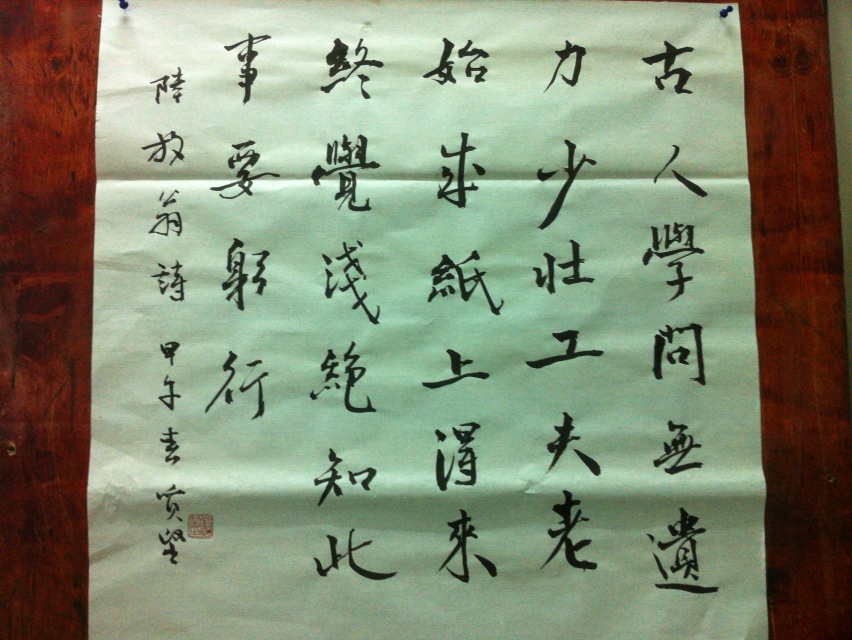 古人學問無遺
力少壯工夫老
始成紙上得來
終覺淺絕知此
事要躬行
陸放翁詩 甲午春